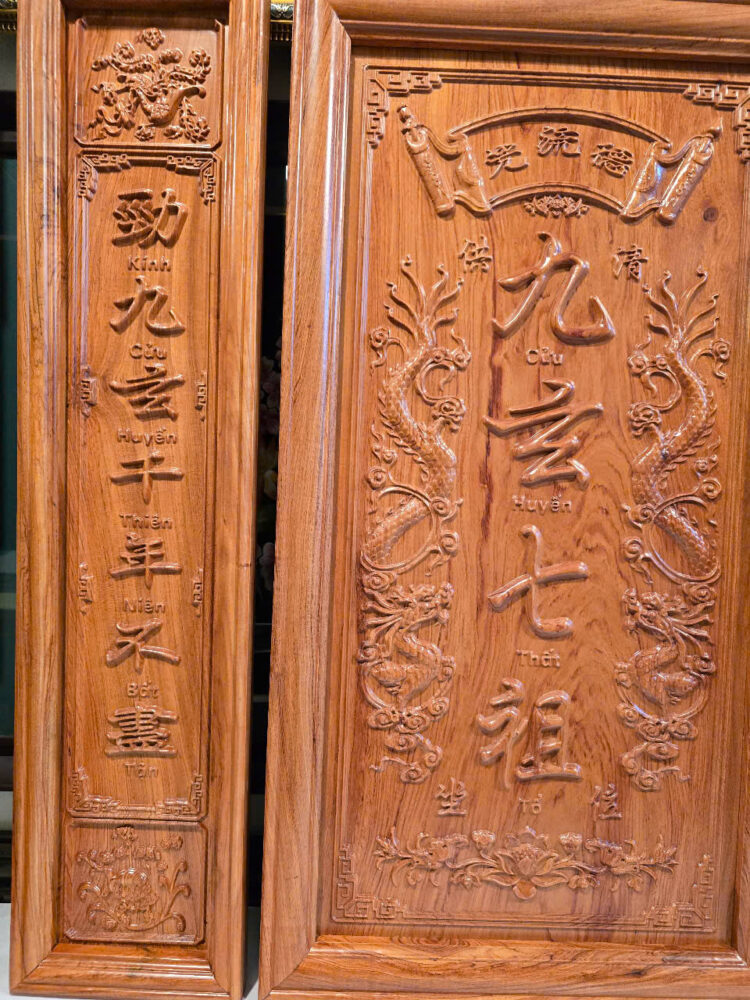 勁
Kính
九
Cửu
玄
Huyền
千
Thiên
年
Niên
不
Bất
盡
Tận
德流光
清供
九
Cửu
玄
Huyền
七
Thất
祖
Tổ
位坐